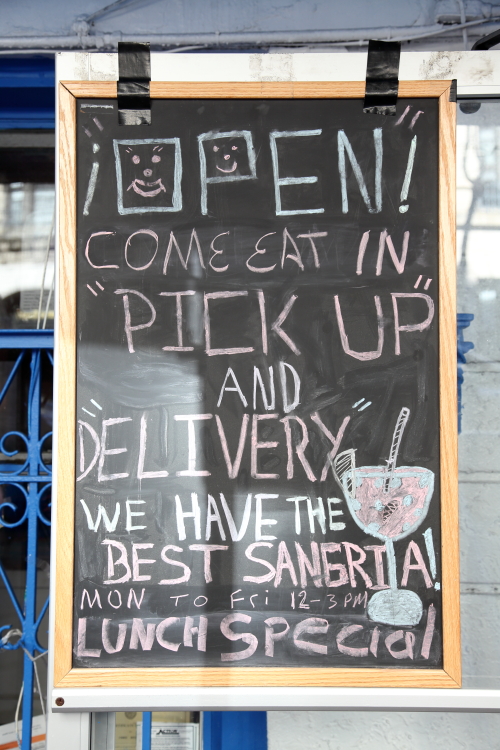 "¡OPEN!"
COME EAT IN
"PICK UP"
AND
"DELIVERY"
WE HAVE THE
BEST SANGRIA!
MON TO Fri 12-3PM
LUNCH SPecial